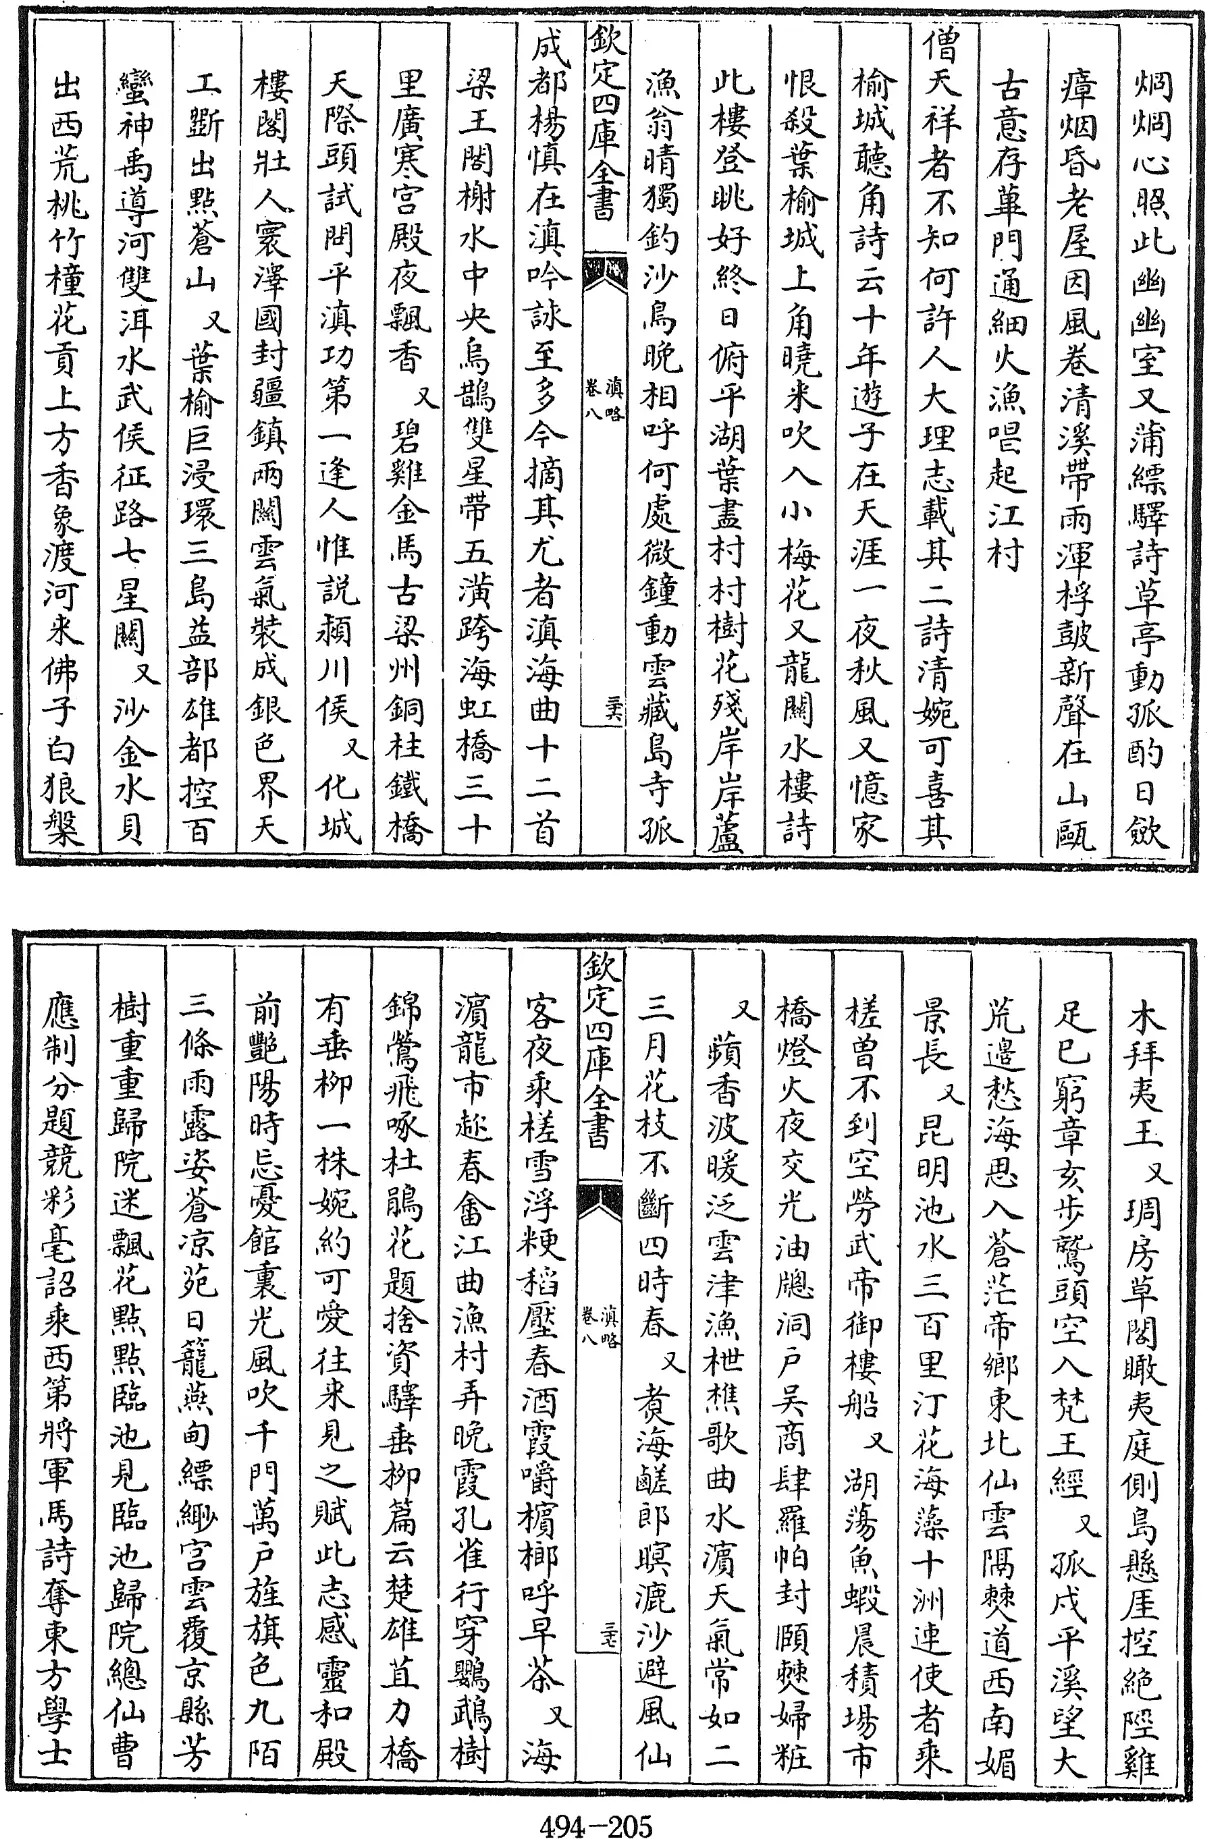 烱烱心照此幽幽室又蒲縹驛詩草亭動孤酌日斂
瘴烟昏老屋因風卷清溪帶雨渾桴皷新聲在山甌
古意存蓽門通細火漁唱起江村
僧天祥者不知何許人大理志載其二詩清婉可喜其
榆城聽角詩云十年遊子在天涯一夜秋風又憶家
恨殺葉榆城上角曉来吹入小梅花又龍關水樓詩
此樓登眺好終日俯平湖葉盡村村樹花殘岸岸蘆
漁翁晴獨釣沙鳥晚相呼何處微鐘動雲藏島寺孤
欽定四庫全書
滇略
卷八
三十六
成都楊慎在滇吟詠至多今摘其尤者滇海曲十二首
梁王閣榭水中央烏鵲雙星帶五潢跨海虹橋三十
里廣寒宫殿夜飄香 又 碧雞金馬古梁州銅柱鐵橋
天際頭試問平滇功第一逢人惟説潁川侯 又 化城
樓閣壯人寰澤國封疆鎮兩關雲氣裝成銀色界天
工斲出點蒼山 又 葉榆巨浸環三島益部雄都控百
蠻神禹導河雙洱水武侯征路七星關 又 沙金水貝
出西荒桃竹橦花貢上方香象渡河来佛子白狼槃
木拜夷王 又 琱房草閣瞰夷庭側島懸厓控絶陘雞
足已窮章亥步鷲頭空入梵王經 又 孤戍平溪望大
荒邊愁海思入蒼茫帝鄉東北仙雲隔僰道西南媚
景長 又 昆明池水三百里汀花海藻十洲連使者乘
槎曾不到空勞武帝御樓船 又 湖蕩魚蝦晨積場市
橋燈火夜交光油牕洞户吴商肆羅帕封頤僰婦粧
又 蘋香波暖泛雲津漁枻樵歌曲水濵天氣常如二
三月花枝不斷四時春 又 煑海鹺郎暝漉沙避風仙
欽定四庫全書
滇略
卷八
三十七
客夜乘槎雪浮粳稻壓春酒霞嚼檳榔呼早茶 又 海
濵龍市趂春畬江曲漁村弄晚霞孔雀行穿鸚鵡樹
錦鶯飛啄杜鵑花題捨資驛垂柳篇云楚雄苴力橋
有垂柳一株婉約可愛往来見之賦此志感靈和殿
前艷陽時忘憂館裏光風吹千門萬户旌旗色九陌
三條雨露姿蒼凉苑日籠燕甸縹緲宫雲覆京縣芳
樹重重歸院迷飄花點點臨池見臨池歸院總仙曹
應制分題競彩毫詔乘西第將軍馬詩奪東方學士
494-205